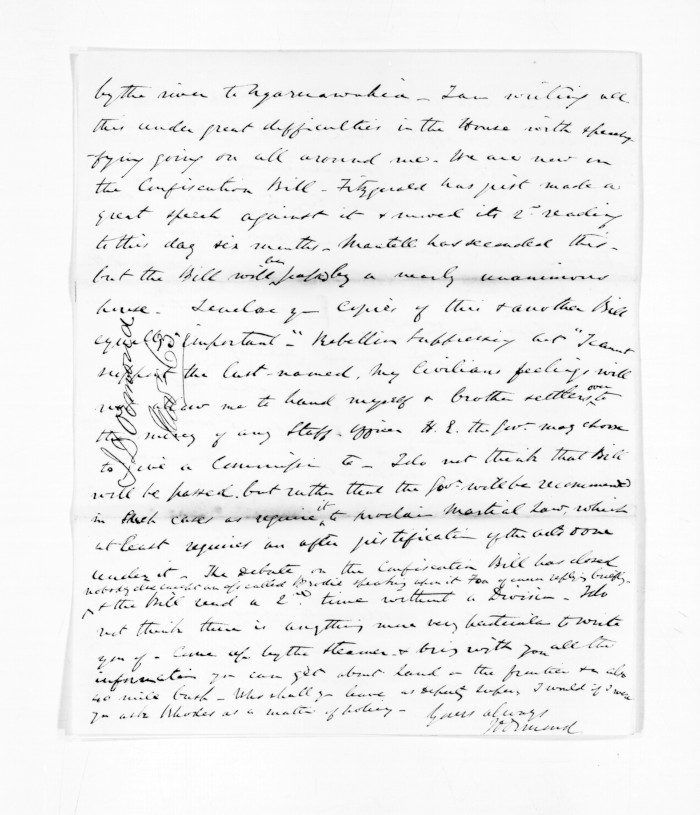 by the river to Ngaruawahia - I am writing all
this under great difficulties in the House with speechi-
fying going on all around me. We are now on
the Confiscation Bill - Fitzgerald has just made a
great speech against it & moved its 2nd reading
to this day six months - Mantell has seconded this -
but the Bill will be passed by a nearly unanimous
house. I enclose you copies of this & another Bill
equally important - "Rebellion Suppressing Act" I cannot
support the last-named, my Civilians feelings will
not allow me to hand myself & brother settlers over to
the mercy of any Staff-Officer H. E. the Govr may choose
to give a Commission to - I do not think that Bill
will be passed, but rather that the Govr will be recommend
in such cases as require it, to proclaim Martial Law, which
at least requires an after justification of the acts done
under it - The debate on the Confiscation Bill has closed
nobody Brodie speaking upon it replying briefly -
& the Bill read a 2nd time without a Division - I do
not think there is anything more very particular to write
you of - Come up by the Steamer & bring with you all the
information you can get about land on the frontier & in also
40 mile bush - Who shall you leave as deputy Super, I would if I were
you ask Rhodes as a matter of policy -
Yours always
J D Ormond
J D Ormond
Nov 5 63